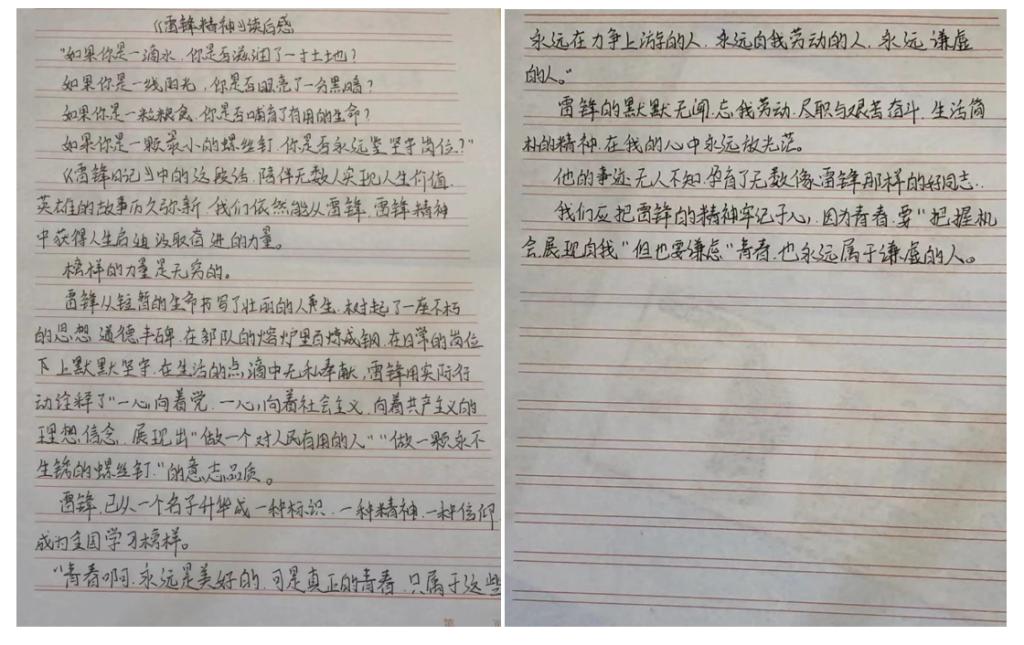 《雷锋精神》读后感
"如果你是一滴水，你是否滋润了一寸土地？
如果你是一线阳光，你是否照亮了一分黑暗？
如果你是一粒粮食，你是否哺育了有用的生命？
如果你是一颗最小的螺丝钉，你是否永远坚坚守岗位？"
《雷锋日记》中的这段话，陪伴无数人实现人生价值，
英雄的故事历久弥新，我们依然能从雷锋，雷锋精神
中获得人生启迪汲取奋进的力量。
榜样的力量是无穷的。
雷锋从短暂的生命书写了壮丽的人生，树起了一座不朽
的思想，道德丰碑，在部队的熔炉里百炼成钢，在日常的岗位
下上默默坚守，在生活的点滴中无私奉献，雷锋用实际行
动诠释了"一心向着党，一心向着社会主义，向着共产主义的
理想信念，展现出"做一个对人民有用的人""做一颗永不
生锈的螺丝钉"的意志品质。
雷锋，已从一个名子升华成一种标识，一种精神，一种信仰
成为全国学习榜样。
"青春啊，永远是美好的，可是真正的青春，只属于这些
永远在力争上游的人，永远自我劳动的人，永远谦虚
的人。"
雷锋的默默无闻，忘我劳动，尽职与艰苦奋斗，生活简
朴的精神，在我的心中永远放光茫。
他的事迹无人不知，孕育了无数像雷锋那样的好同志..
我们应把雷锋的精神牢记于心，因为青春，要"把握机
会展现自我"但也要谦虑"青春，也永远属于谦虚的人。